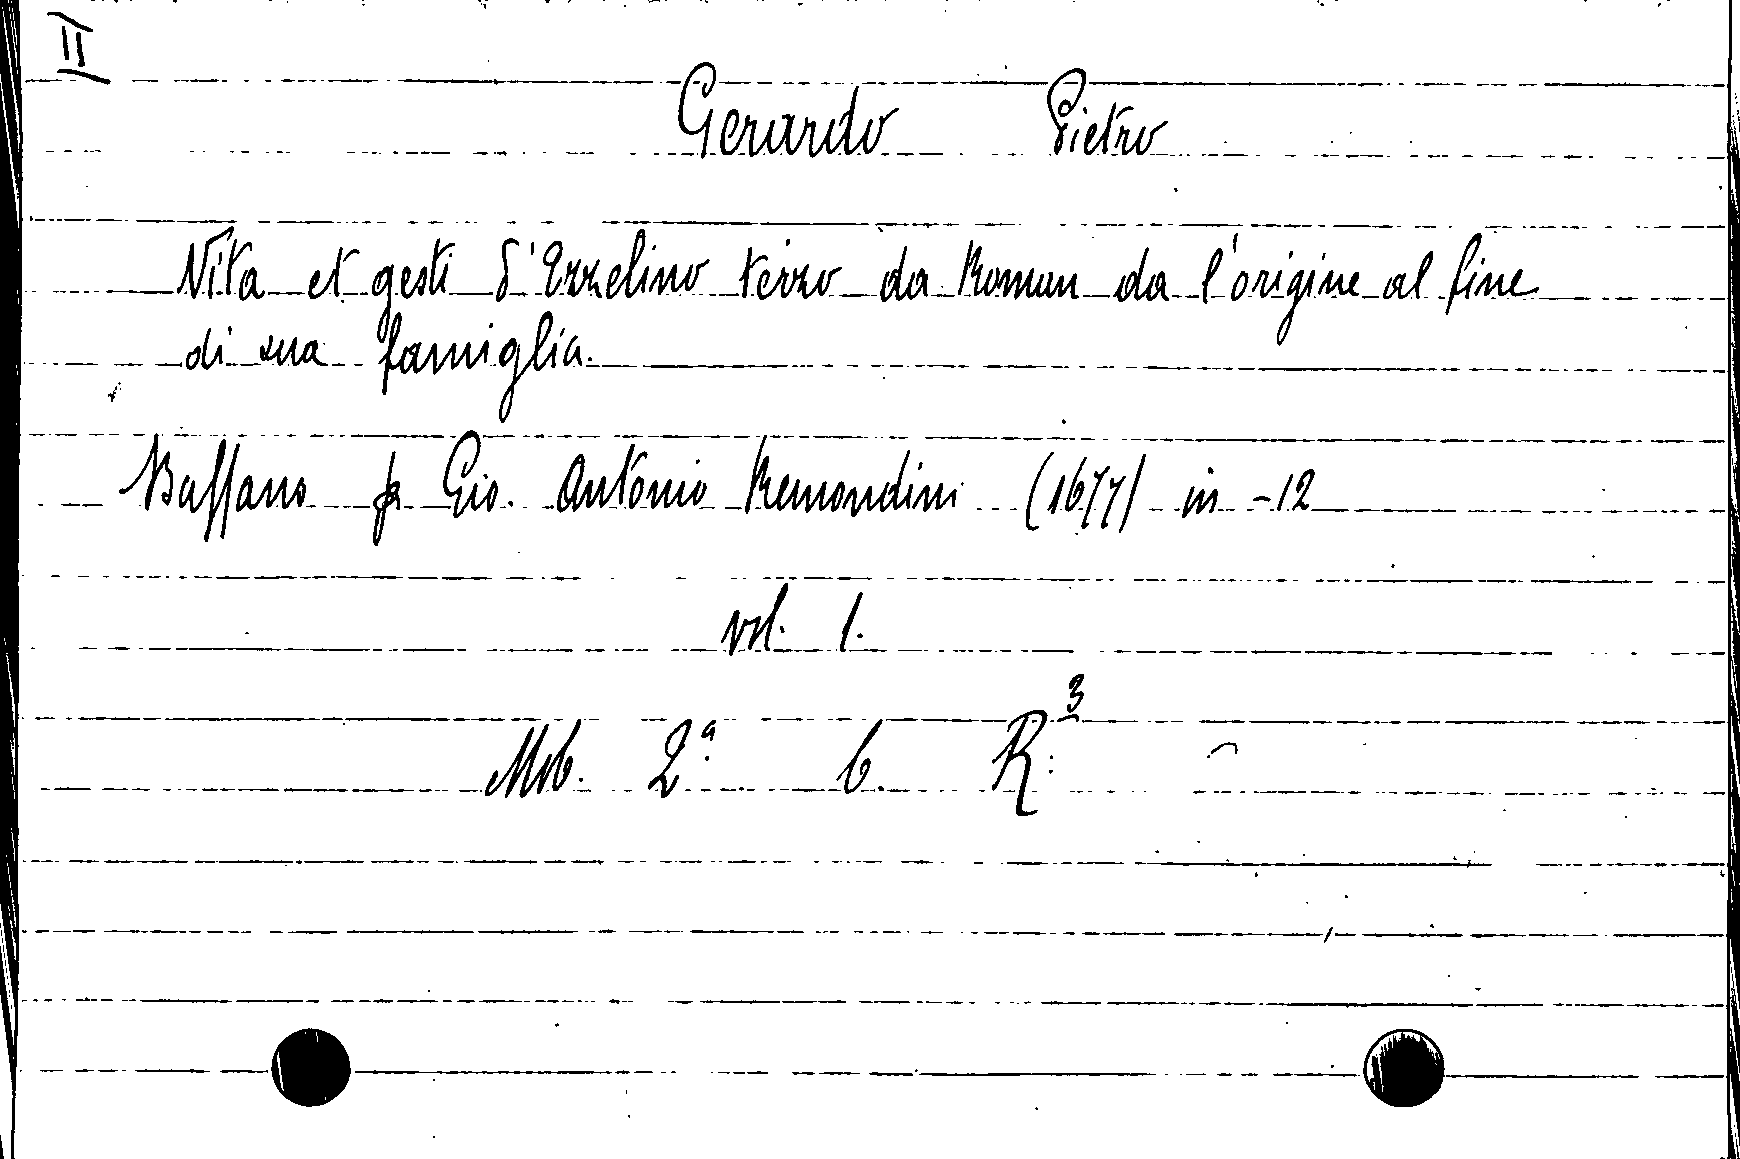 II
Gerardo Pietro
Vita et gesti d'Ezzelino terzo da Roman da l'origine al fine
di sua famiglia.
Baſſano p Gio. Antonio Remondini (1677) in -12
vol. 1.
Mob. 2ª. b. R:³